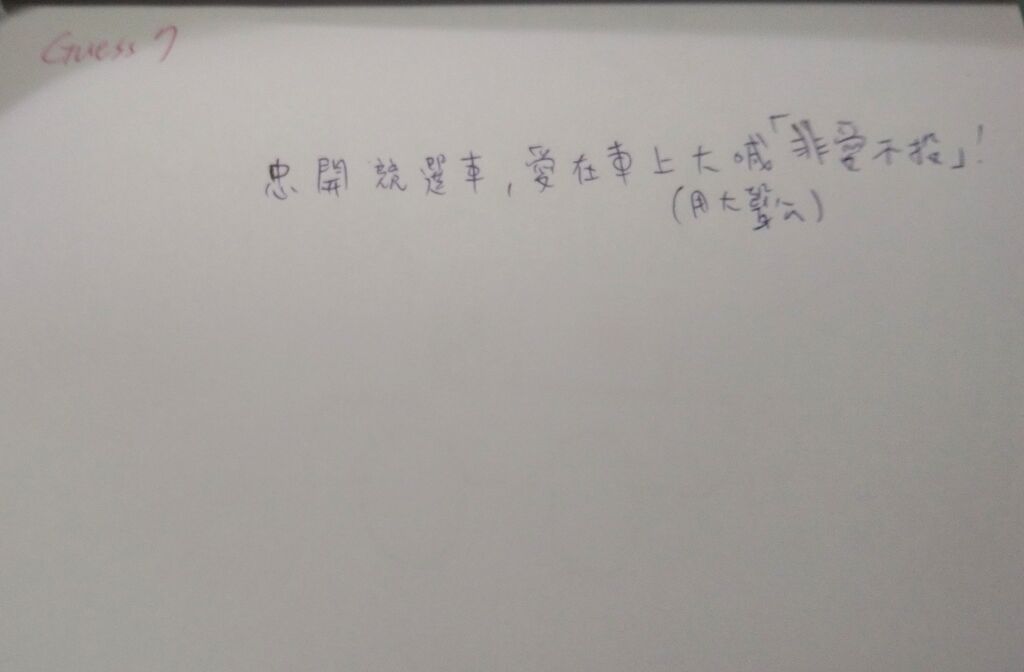 Guess 7
忠開競選車,愛在車上大喊「非愛不投」!
(用大聲公)